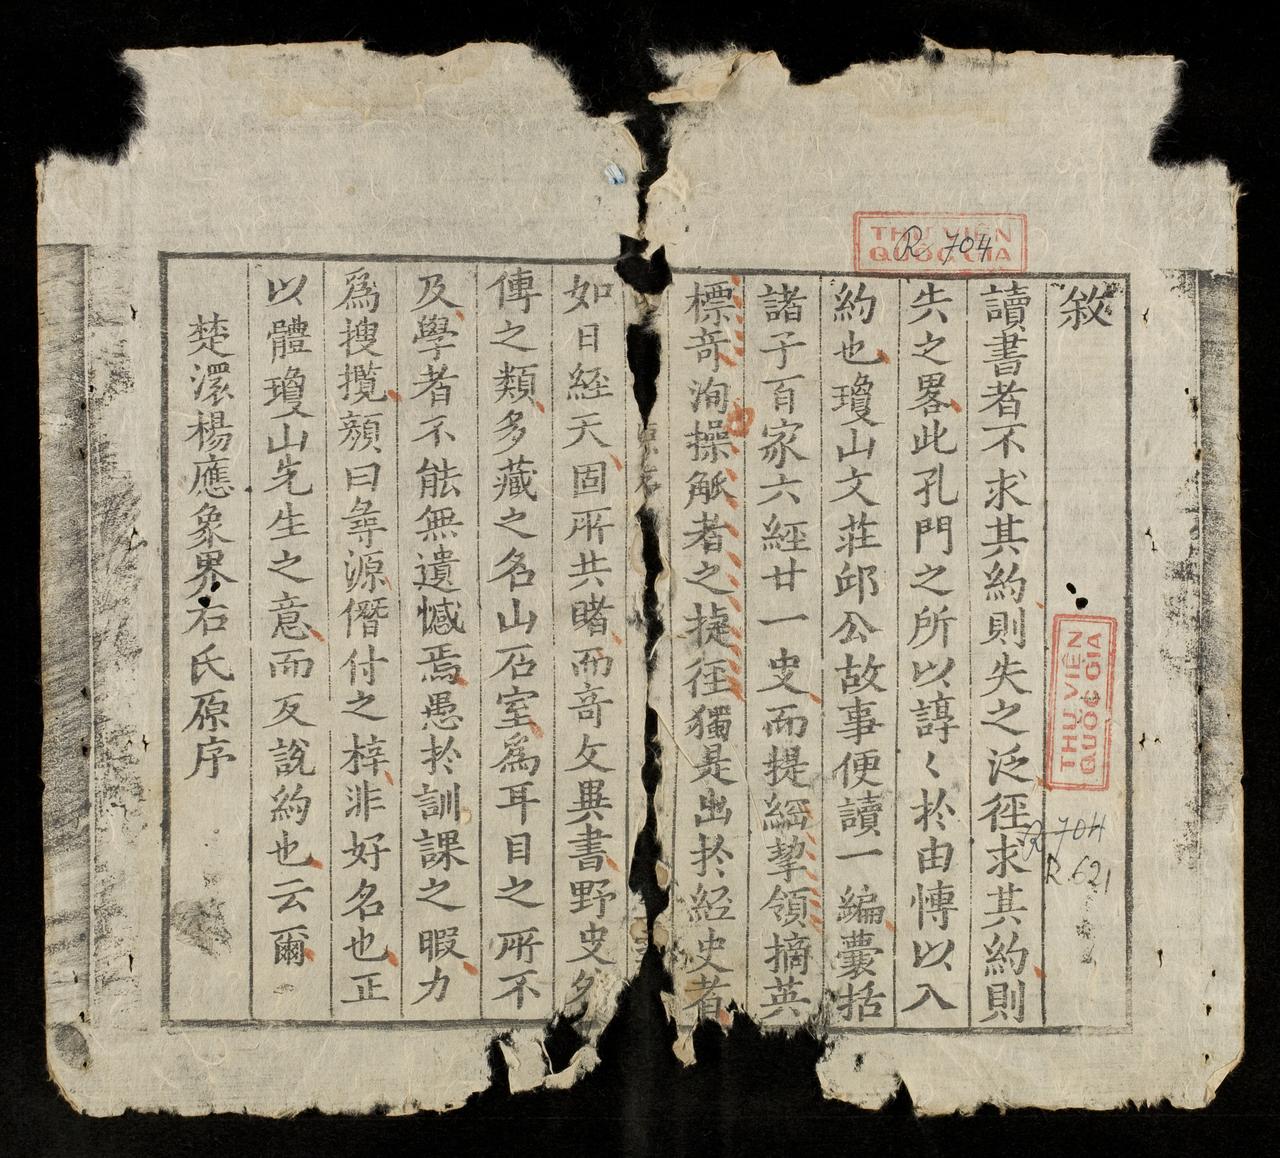 敘
讀書者不求其約則失之泛徑求其約則
失之畧此孔門之所以諄〻於由博以入
約也瓊山文莊邱公故事便讀一編囊括
諸子百家六經廿一史而提綱挈領摘英
標竒洵操觚者之捷徑獨是出於經史者
如日經天固所共睹而竒文異書野史
傳之類多藏之名山石室爲耳目之所不
及學者不能無遺憾焉愚於訓課之暇力
爲搜攬顏曰尋源僭付之梓非好名也正
以體瓊山先生之意而反說約也云爾
楚澴楊應象界石氏原序
THƯ VIỆN
QUỐC GIA
R 704
THƯ VIỆN
QUỐC GIA
R 704
R 621